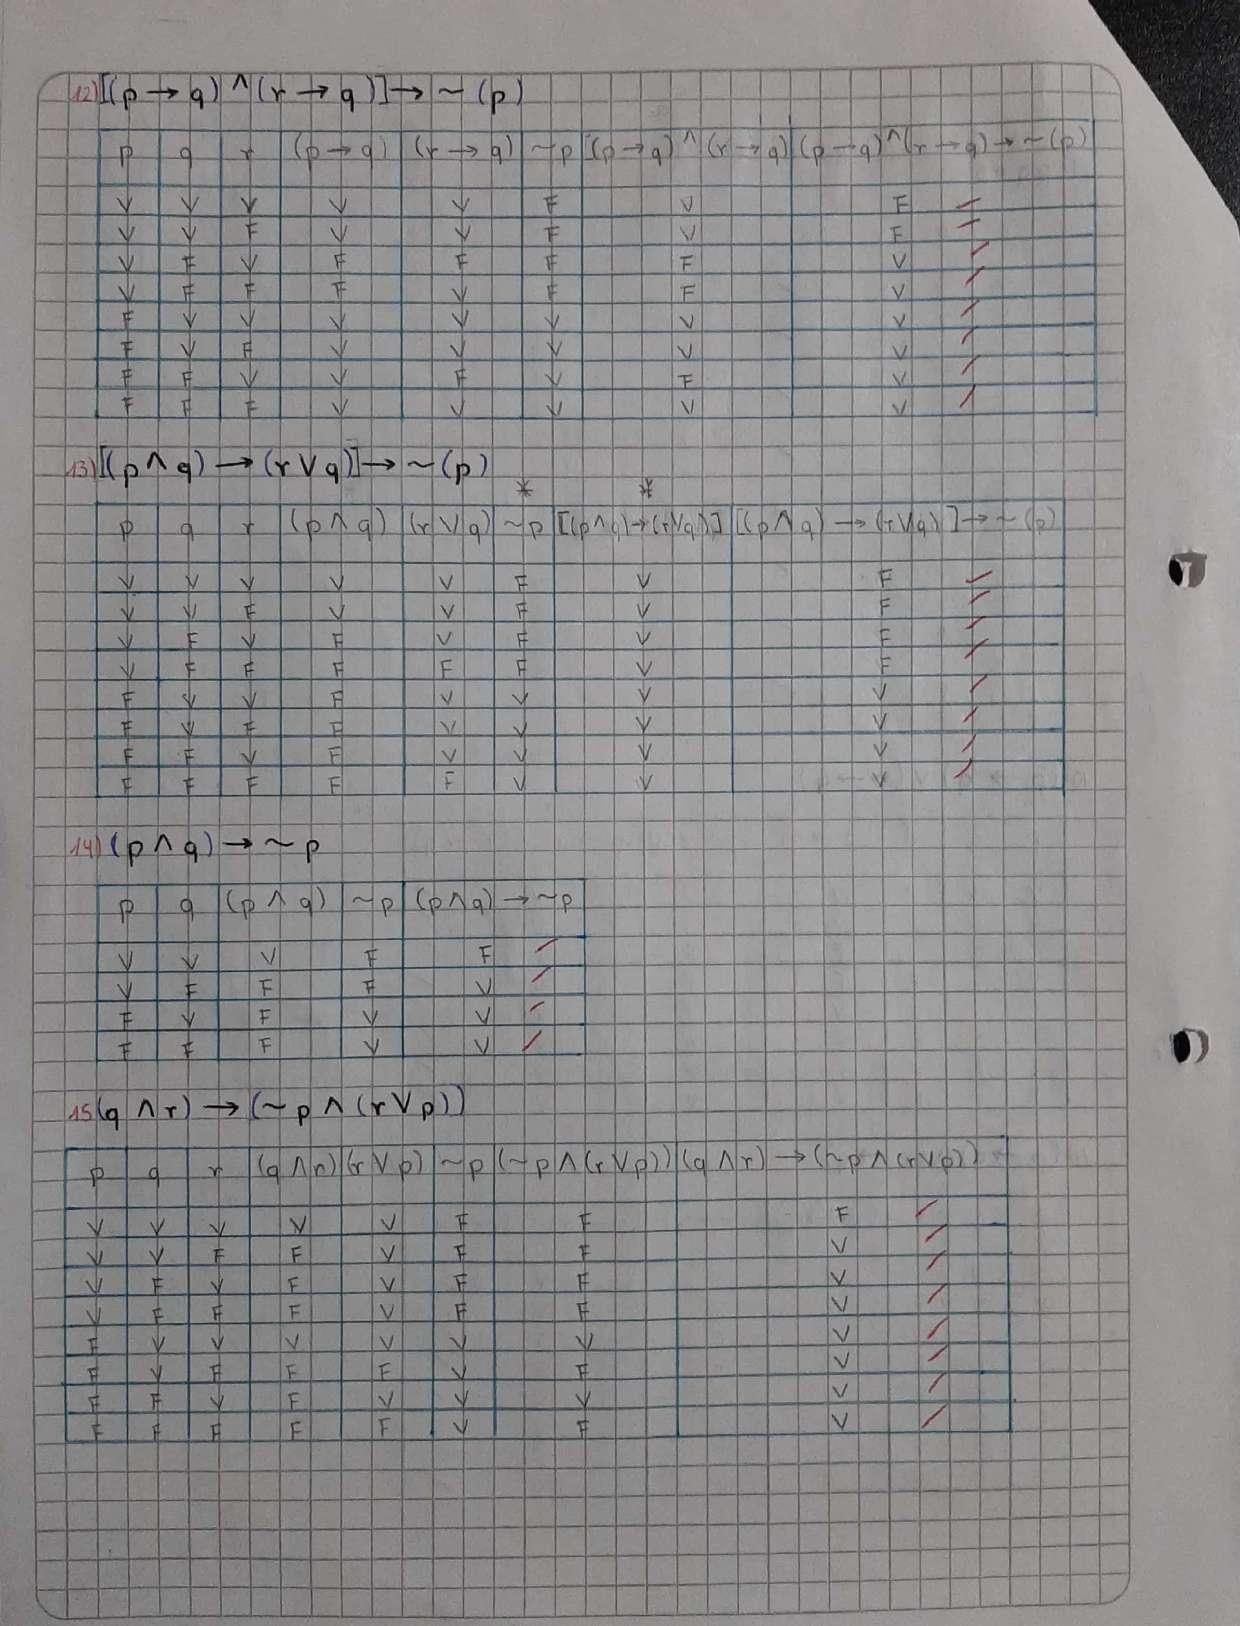 12) [(p → q) ∧ (r → q)] → ~ (p)
p q r (p → q) (r → q) ~p [(p → q) ∧ (r → q) (p → q) ∧ (r → q) → ~(p)
V V V V V F V F
V V F V V F V F
V F V F F F F V
V F F F V F F V
F V V V V V V V
F V F V V V V V
F F V V F V F V
F F F V V V V V
13) [(p ∧ q) → (r ∨ q)] → ~ (p)
* *
p q r (p ∧ q) (r ∨ q) ~p [(p∧q)→(r∨q)] [(p ∧ q) → (r∨q)] → ~ (p)
V V V V V F V F
V V F V V F V F
V F V F V F V F
V F F F F F V F
F V V F V V V V
F V F F V V V V
F F V F V V V V
F F F F F V V V
14) (p ∧ q) → ~ p
p q (p ∧ q) ~p (p∧q) → ~p
V V V F F
V F F F V
F V F V V
F F F V V
15 (q ∧ r) → (~ p ∧ (r ∨ p))
p q r (q ∧ r) (r ∨ p) ~p (~p ∧ (r ∨ p)) (q ∧ r) → (~p ∧ (r∨p))
V V V V V F F F
V V F F V F F V
V F V F V F F V
V F F F V F F V
F V V V V V V V
F V F F F V F V
F F V F V V V V
F F F F F V F V